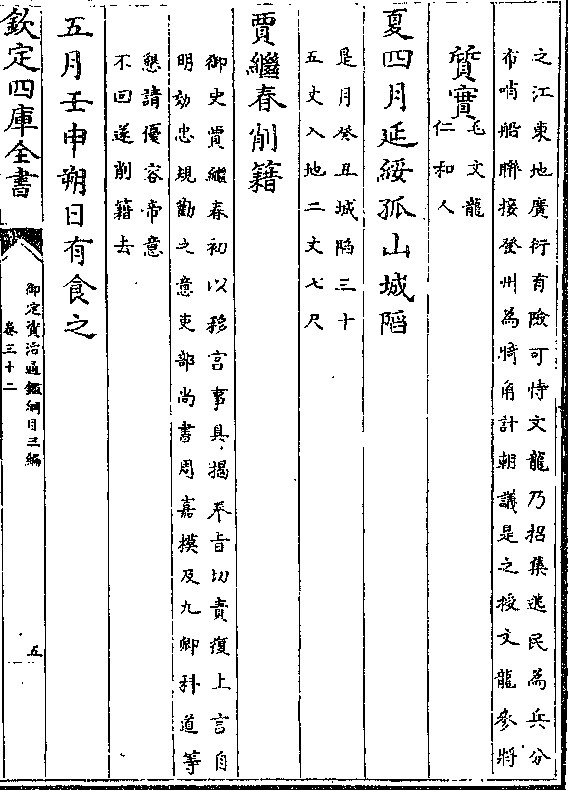 之江東地廣衍有險可恃文龍乃招集逃民為兵分
布哨船聯接登州為犄角計朝議是之授文龍參將
質實
毛文龍
仁和人
夏四月延綏孤山城陷
是月癸丑城陷三十
五丈入地二丈七尺
賈繼春削籍
御史賈繼春初以移宫事具揭奉旨切責復上言自
明効忠規勸之意吏部尚書周嘉謨及九卿科道等
懇請優容帝意
不回遂削籍去
五月壬申朔日有食之
欽定四庫全書
御定資治通鑑綱目三編
卷三十二
五